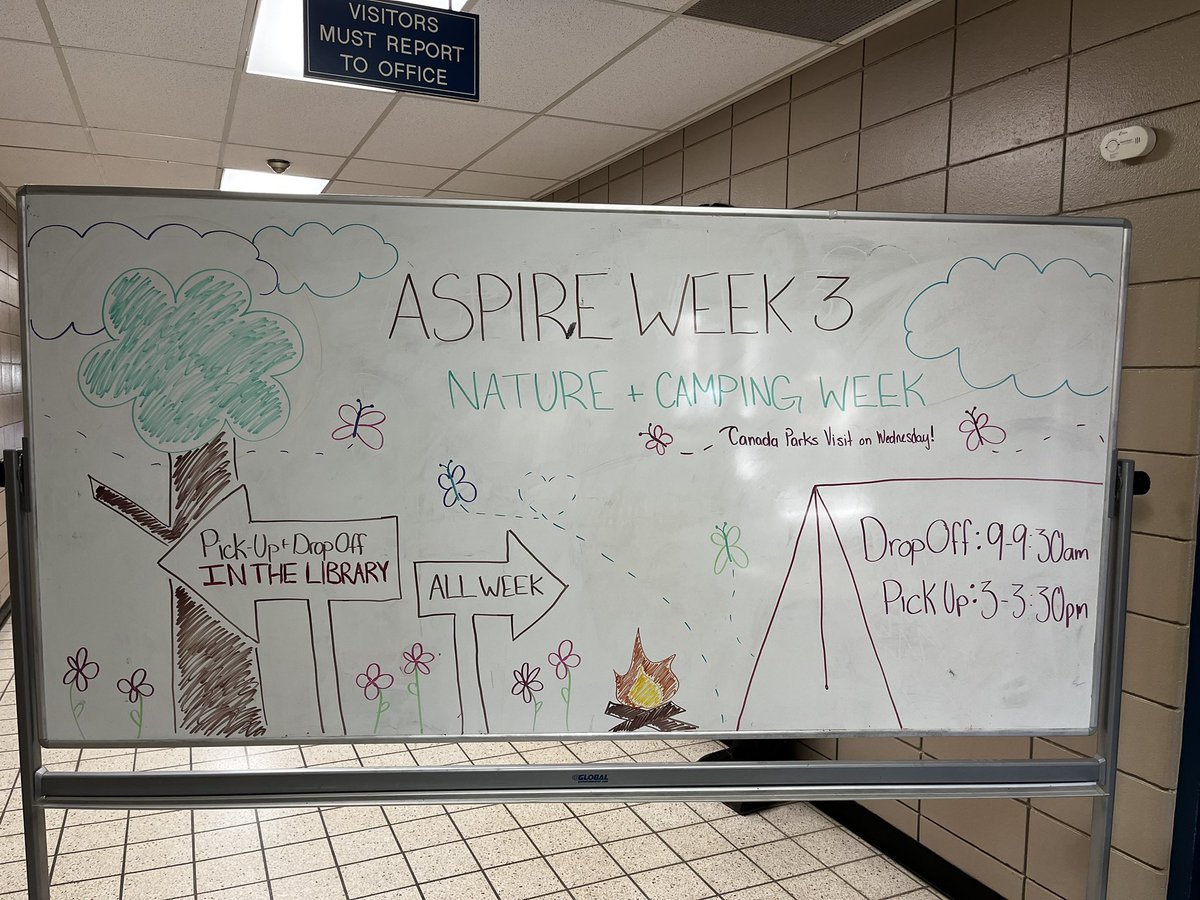 VISITORS
MUST REPORT
TO OFFICE
ASPIRE WEEK 3
NATURE + CAMPING WEEK
Canada Parks Visit on Wednesday!
Pick-Up + Drop Off
IN THE LIBRARY
ALL WEEK
Drop Off: 9-9:30am
Pick Up: 3-3:30pm
GLOBAL